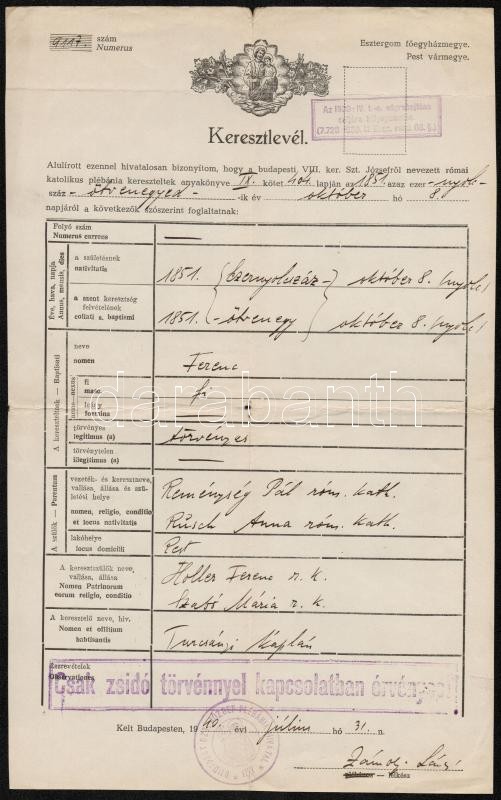 9117. szám
Numerus
Esztergom főegyházmegye.
Pest vármegye.
Az 1939: IV. t.-c. végrehajtása
céljára
(7.720
Keresztlevél.
Alulírott ezennel hivatalosan bizonyítom, hogy a budapesti VIII. ker. Szt. Józsefről nevezett római
katolikus plébánia kereszteltek anyakönyve IX. kötet 404. lapján az 1851 azaz ezer-nyolc-
száz - ötvenegyed - -ik év október hó 8.
napjáról a következők szószerint foglaltatnak:
Folyó szám
Numerus currens
Éve, hava, napja
Annus, mensis, dies
a születésnek
nativitatis
1851. (Ezernyolcszáz- október 8. (nyolc)
a szent keresztség
felvételének
collati s. baptismi
1851. -ötvenegy) október 8. (nyolc)
A kereszteltnek — Baptisati
neve
nomen
Ferenc
neme-sexus
fi
masc.
fi
leány
foemina
törvényes
legitimus (a)
törvényes
törvénytelen
illegitimus (a)
A szülők — Parentum
vezeték- és keresztneve,
vallása, állása és szü-
letési helye
nomen, religio, conditio
et locus nativitatis
Reménység Pál róm. kath.
Rüsch Anna róm. kath.
lakóhelye
locus domicilii
Pest
A keresztszülők neve,
vallása, állása
Nomen Patrinorum
eorum religio, conditio
Holler Ferenc r. k.
Szabó Mária r. k.
A keresztelő neve, hiv.
Nomen et offitium
babtisantis
Turcsányi káplán
Észrevételek
Observationes
Csak zsidó törvénnyel kapcsolatban érvényes!
Kelt Budapesten, 1940. évi július hó 31. n.
plébános — lelkész
darabanth